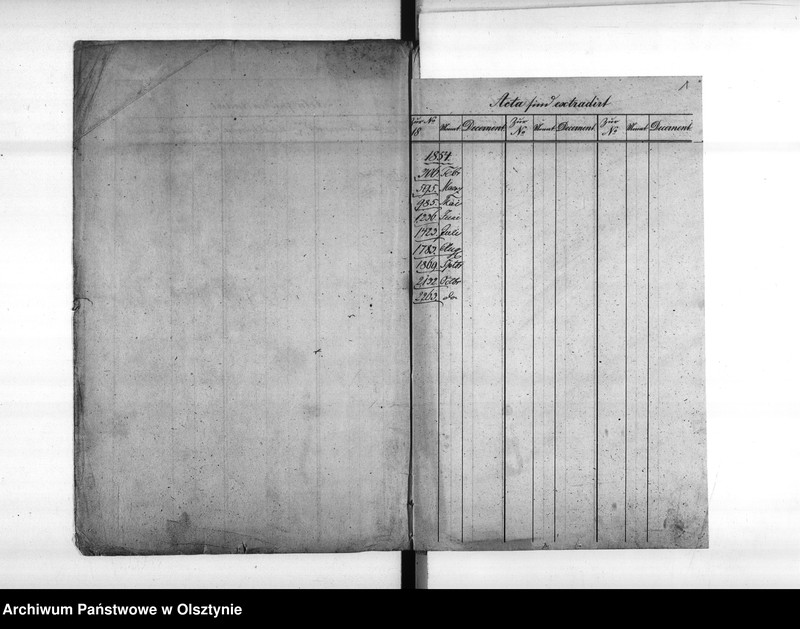 1
Acta sind extradirt
Zur No 18 Monat Decernent Zur No Monat Decernent Zur No Monat Decernent
1854.
Febr
595. Maerz
985. Mai
1236. Juni
1723. Juli
1783. Aug
1869. Septbr
2192. Octbr
2263. do
Archiwum Państwowe w Olsztynie